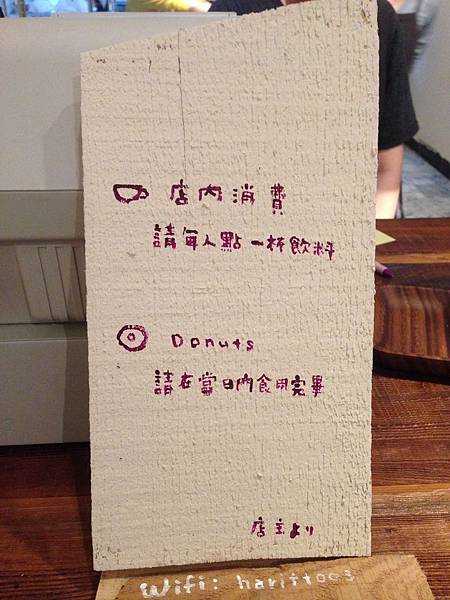 店內消費
請每人點一杯飲料
Donuts
請在當日內食用完畢
店主より
Wifi: haritts003